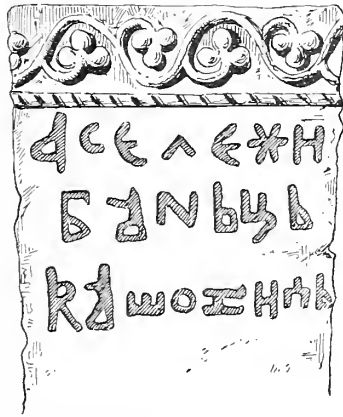 А СЕ ЛЕЖН
БАNЬЦЬ
КАШОМНЛЬ